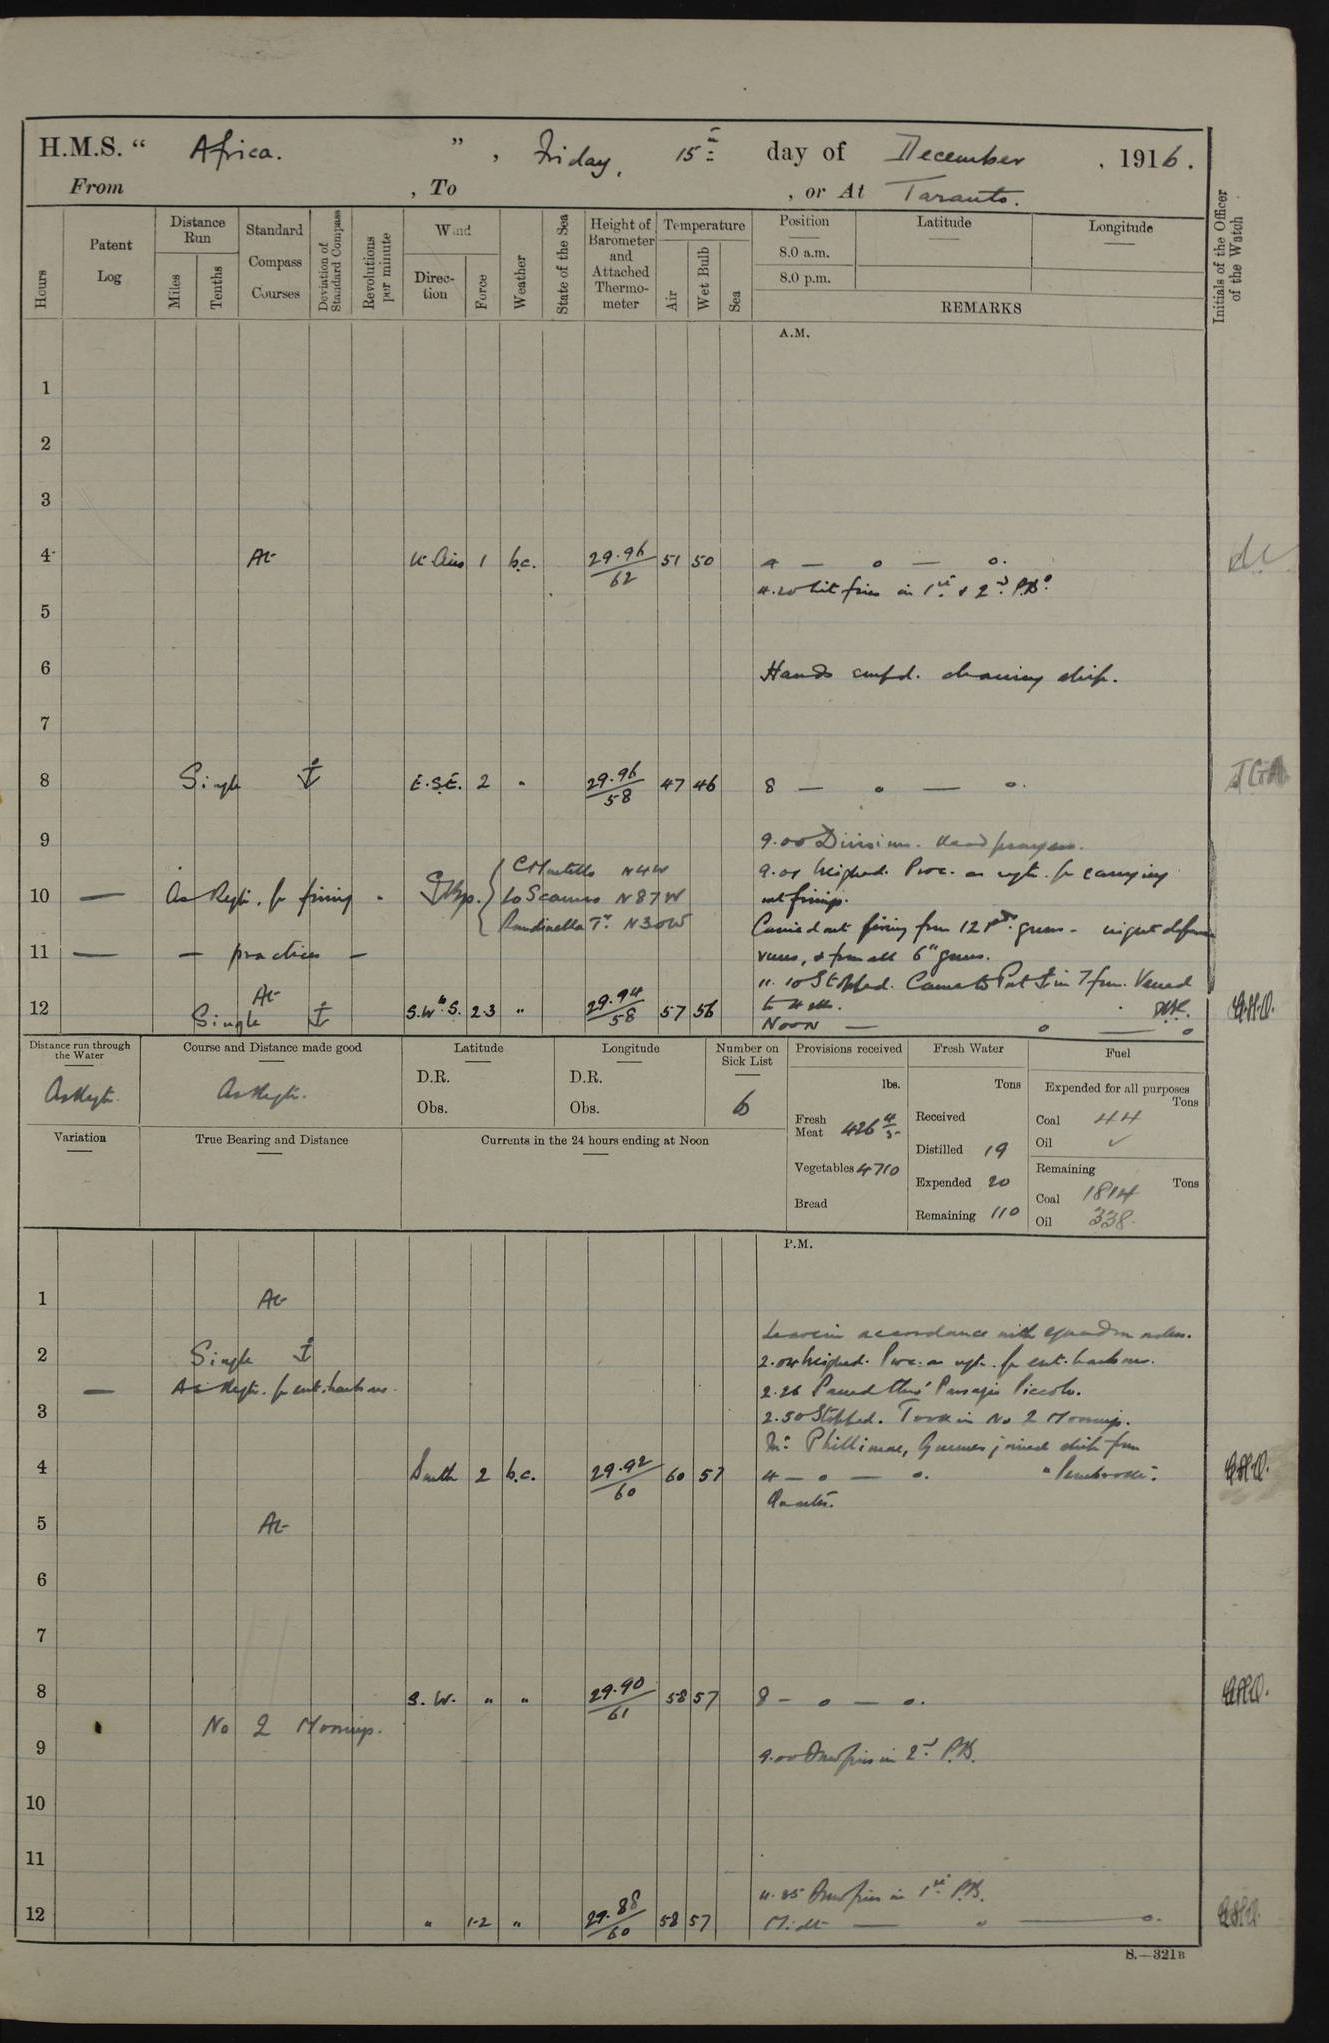 H.M.S. “ Africa. ” , Friday, 15th day of December , 1916.
From , To , or At Taranto.
Hours
Patent Log
Distance Run
Miles
Tenths
Standard Compass Courses
Deviation of Standard Compass
Revolutions per minute
Wind
Direction
Force
Weather
State of the Sea
Height of Barometer and Attached Thermometer
Temperature
Air
Wet Bulb
Sea
Position
8.0 a.m.
8.0 p.m.
Latitude
Longitude
REMARKS
Initials of the Officer of the Watch
A.M.
1
2
3
4 At Lt Airs 1 b.c. 29.96/62 51 50 4 — o — o.
4.20 Lit fires in 1st & 2nd P.B.s
5
6 Hands empd. cleaning ship.
7
8 Single ⚓ E.S.E. 2 " 29.96/58 47 46 8 — o — o. JGA
9 9.00 Divisions. Read prayers.
C Martello N4W 9.01 Weighed. Proc. as reqte. for carrying
10 — As Reqte. for firing Lo Scanno N87W out firings.
Rondinella Tr. N30W Carried out firing from 12 Pdr. guns - night defence
11 — — practices — runs, & from all 6" guns.
At 11.10 Stopped. Came to Port ⚓ in 7 fm. Veered
12 Single ⚓ S.W.b.S. 2-3 " 29.94/58 57 56 to 4 shs.
Noon — o — o
Distance run through the Water
As Reqte.
Course and Distance made good
As Reqte.
Latitude
D.R.
Obs.
Longitude
D.R.
Obs.
Number on Sick List
6
Provisions received
lbs.
Fresh Meat 426 4/5
Vegetables 4710
Bread
Fresh Water
Tons
Received
Distilled 19
Expended 20
Remaining 110
Fuel
Expended for all purposes
Tons
Coal 44
Oil ✓
Remaining
Tons
Coal 1814
Oil 338
Variation
True Bearing and Distance
Currents in the 24 hours ending at Noon
P.M.
1 At
Leave in accordance with squadron orders.
2 Single ⚓ 2.04 Weighed. Proc. as reqte. for ent. harbour.
— As Reqte. for ent. harbour. 2.26 Passed thro' Passagio Piccolo.
3 2.50 Stopped. Took in No 2 Moorings.
Mr. Phillimore, Gunner joined ship from
4 South 2 b.c. 29.92/60 60 57 4 — o — o. "Pembroke".
Quarters.
5 At
6
7
8 S.W. " " 29.90/61 58 57 8 — o — o.
No 2 Moorings.
9 9.00 Drew fires in 2nd P.B.
10
11
11.35 Drew fires in 1st P.B.
12 " 1-2 " 29.88/60 58 57 Midt — o — o.
S.—321B